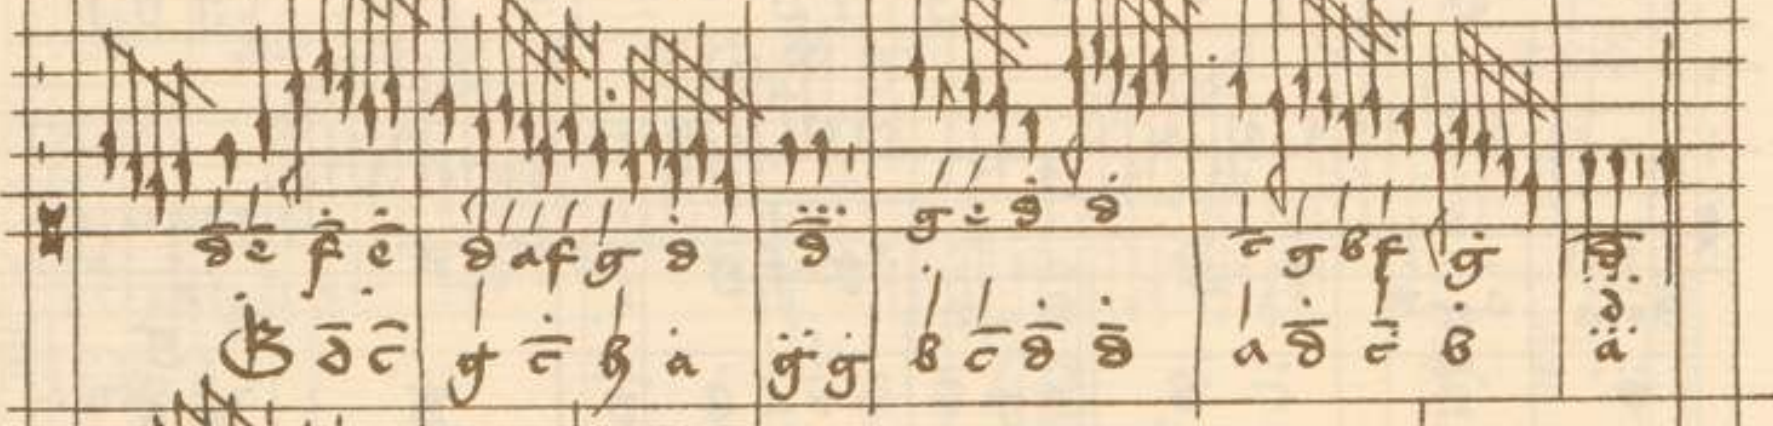 d e f e d a f g d d g c g d c g b f g d
d
B d c g c b a g g b c d d a d c b a